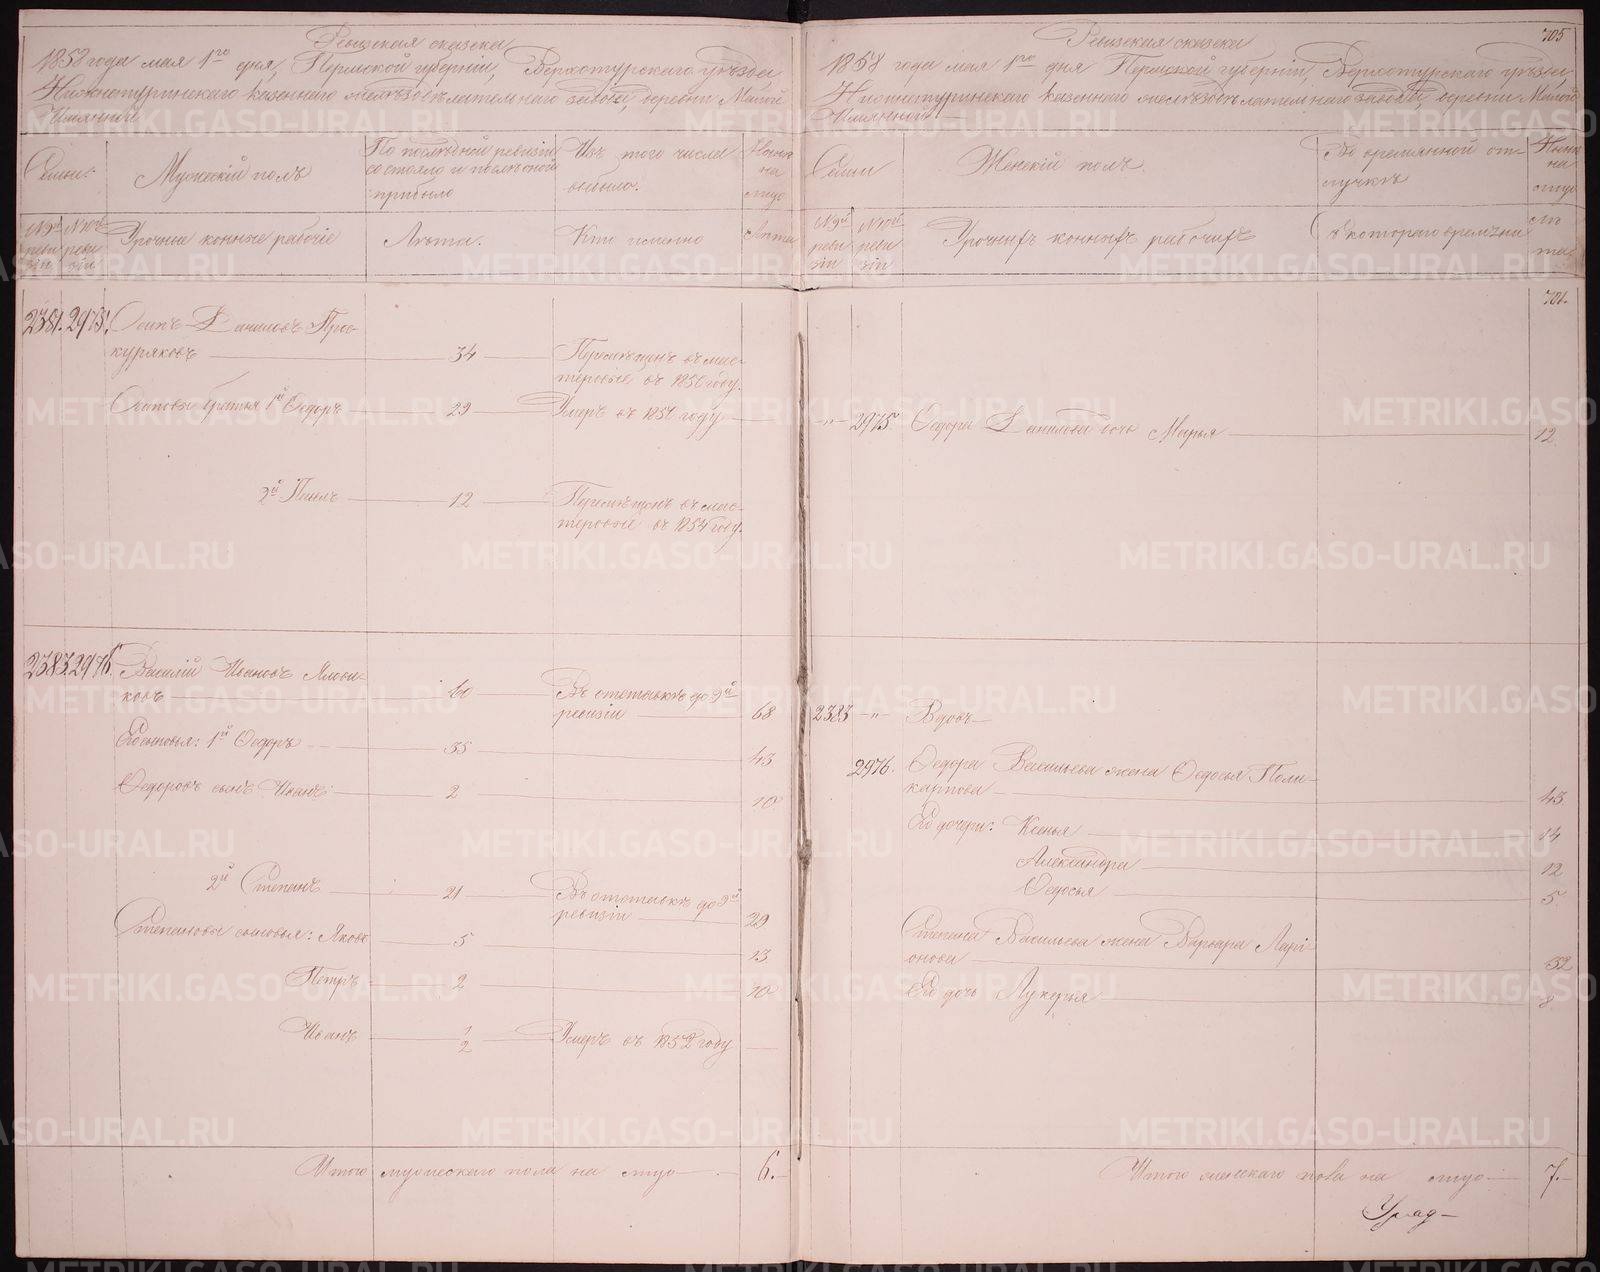 Ревизская сказка
1858 года мая 1го дня, Пермской губернiи, Верхотурскаго уѣзда
Нижнетуринскаго казеннаго желѣзодѣлательнаго завода, деревни Малой
Именной
Семьи.
Мужескiй полъ
По последней ревизiи
состояло и послѣ оной
прибыло
Изъ того числа
выбыло.
Нынѣ
на
лицо
№ 9й
реви
зiи
№ 10й
реви
зiи
Урочные конные рабочiе
Лѣта.
Кто именно
Лѣта
2381. 2975. Осипъ Даниловъ Прос-
куряковъ 34 Перемѣщенъ въ мас-
теровые въ 1850 году.
Осиповы братья 1й Ѳедоръ 29 Умеръ въ 1857 году
2й Павелъ 12 Перемѣщенъ въ мас-
теровые въ 1854 году.
2383. 2976. Василiй Ивановъ
ковъ 60 Въ отставкѣ до 9й
ревизiи 68
Его сыновья: 1й Ѳедоръ 35 43
Ѳедоровъ сынъ Иванъ 2 10
2й Степанъ 21 Въ отставкѣ до 9й
ревизiи 29
Степановы сыновья: Яковъ 5 13
Петръ 2 10
Иванъ 1/2 Умеръ въ 1852 году
Итого мужескаго пола на лицо 6.
705
Ревизская сказка
1858 года мая 1го дня Пермской губернiи, Верхотурскаго уѣзда
Нижнетуринскаго казеннаго желѣзодѣлательнаго завода деревни Малой
Именной
Семьи
Женскiй полъ.
Во временной от-
лучкѣ
Нынѣ
на
лицо
№ 9й
реви
зiи
№ 10й
реви
зiи
Урочныхъ конныхъ рабочихъ
Съ котораго времени
Лѣ
та.
701.
" 2975 Ѳедора Данилова дочь Марья 12
2383 " Вдовъ
2976. Ѳедора Васильева жена Ѳедосья Поли-
карпова 43
Его дочери: Ксенья 14
Александра 12
Ѳедосья 5
Степана Васильева жена Варвара Лари-
онова 32
Его дочь Лукерья 8
Итого женскаго пола на лицо 7.
METRIKI.GASO-URAL.RU